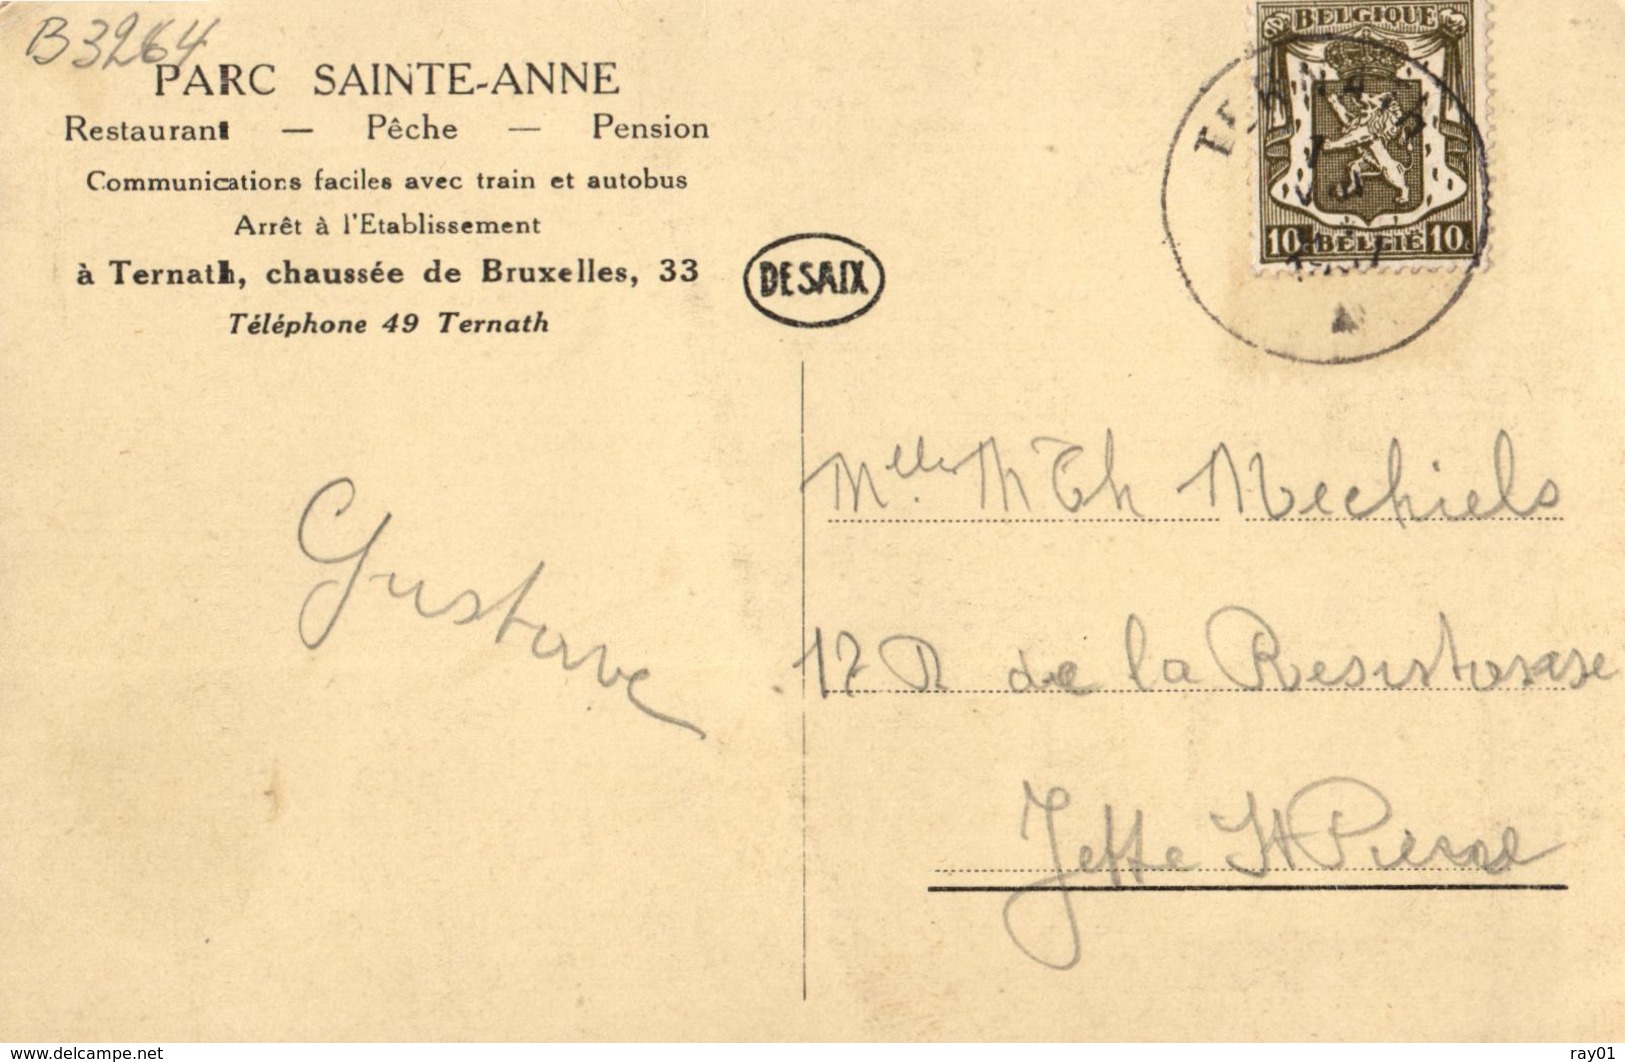 B3264
PARC SAINTE-ANNE
Restaurant — Pêche — Pension
Communications faciles avec train et autobus
Arrêt à l'Etablissement
à Ternath, chaussée de Bruxelles, 33
Téléphone 49 Ternath
DESAIX
BELGIQUE
10c BELGIË 10c
Gustave
Melle M Th Mechiels
17 R de la Resistanse
Jette St Pierre
www.delcampe.net
ray01